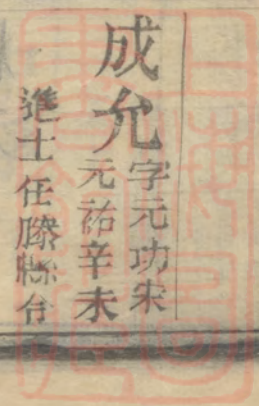 成允
字元功宋
元祐辛未
進士任滕縣台